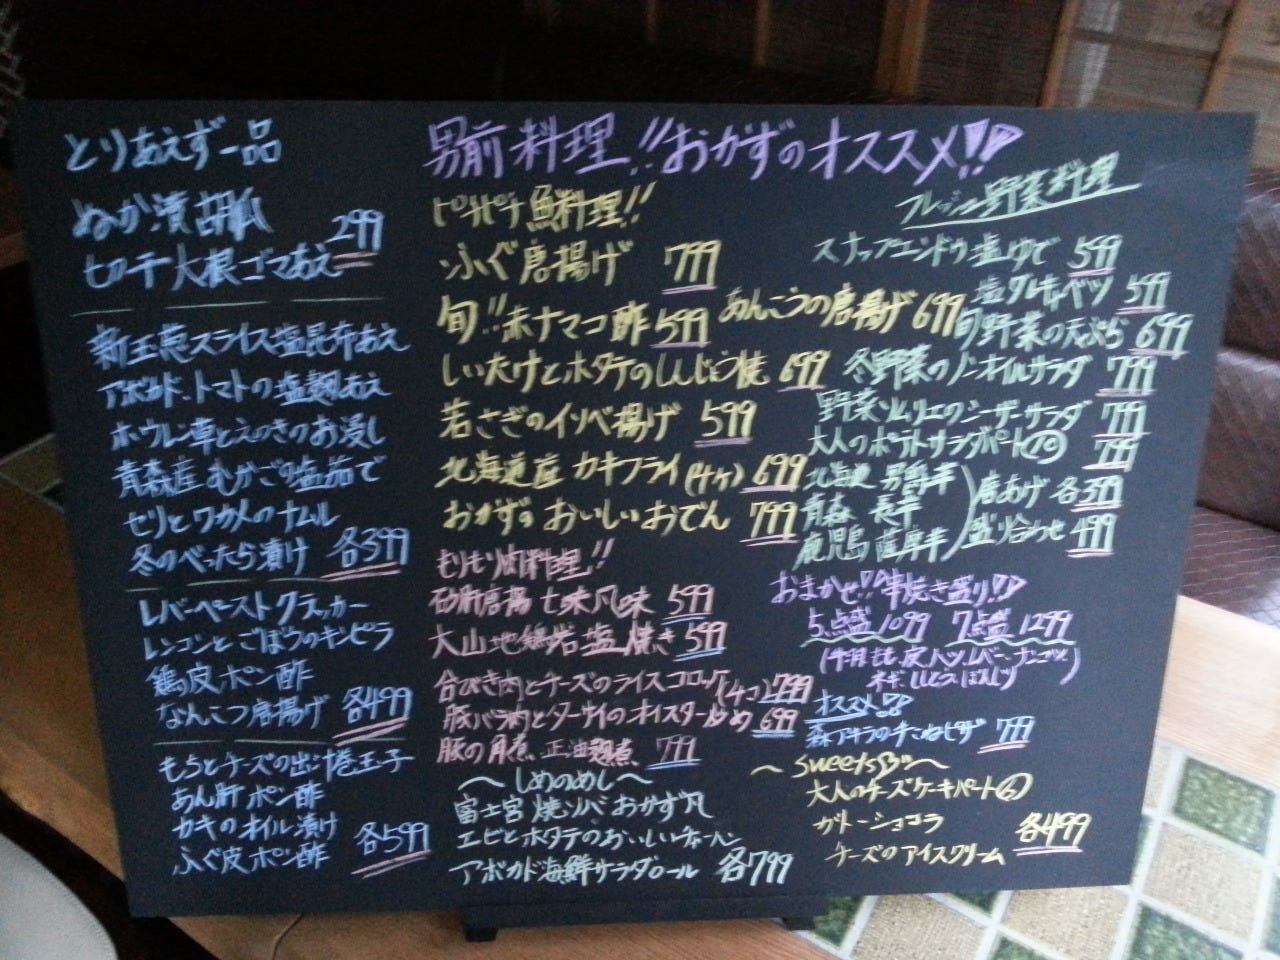 とりあえず一品
ぬか漬胡瓜
切干大根ゴマあえ 299
新玉葱スライス塩昆布あえ
アボカド、トマトの塩麹あえ
ホウレン草とえのきのお浸し
青森産むかごの塩茹で
セリとワカメのナムル
冬のべったら漬け 各399
レバーペーストクラッカー
レンコンとごぼうのキンピラ
鶏皮ポン酢
なんこつ唐揚げ 各499
もちとチーズの出汁巻玉子
あん肝ポン酢
カキのオイル漬け
ふぐ皮ポン酢 各599
男前料理!!おかずのオススメ!!
ピチピチ魚料理!!
ふぐ唐揚げ 799
旬!!赤ナマコ酢 599
あんこうの唐揚げ 699
しいたけとホタテのしんじょう焼 699
若さぎのイソベ揚げ 599
北海道産カキフライ(4ケ) 699
おかずのおいしいおでん 799
もりもり肉料理!!
砂肝唐揚七味風味 599
大山地鶏岩塩焼き 599
合びき肉とチーズのライスコロッケ(4コ) 799
豚バラ肉とターサイのオイスター炒め 699
豚の角煮、正油麹煮 799
〜しめのめし〜
富士宮焼ソバおかず風
エビとホタテのおいしいチャーハン
アボカド海鮮サラダロール 各799
フレッシュ野菜料理
スナップエンドウ塩ゆで 599
塩ダレキャベツ 599
旬野菜の天ぷら 699
冬野菜のノーオイルサラダ 799
野菜ソムリエのシーザーサラダ 799
大人のポテトサラダパート 799
北海道 男爵芋
青森 長芋
鹿児島 薩摩芋
唐あげ 各399
盛り合わせ 499
おまかせ!!串焼き盛り!!
5点盛 1099 7点盛 1299
皮、ハツ、レバー、ナンコツ
ネギ ししとう ぼんじり
オススメ!!
森アキラの手こねピザ 799
〜sweets〜
大人のチーズケーキパート⑥
ガトーショコラ
チーズのアイスクリーム 各499